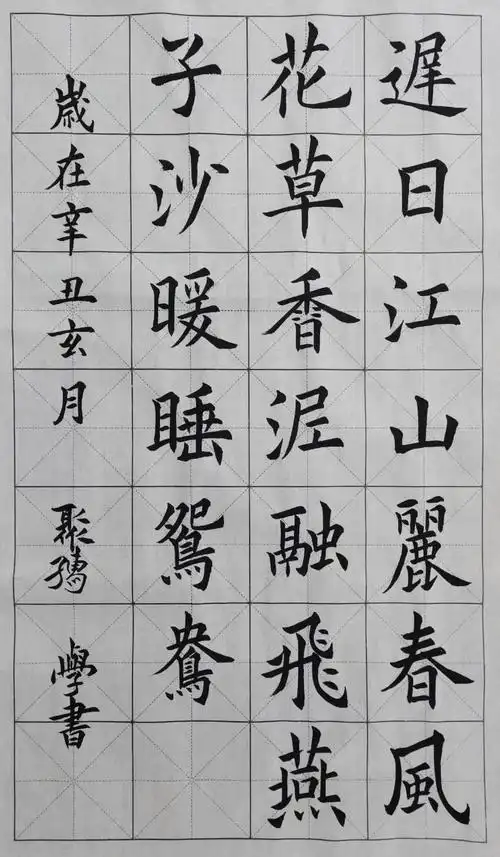 遲日江山麗春風
花草香泥融飛燕
子沙暖睡鴛鴦
歲在辛丑玄月 聚 學書